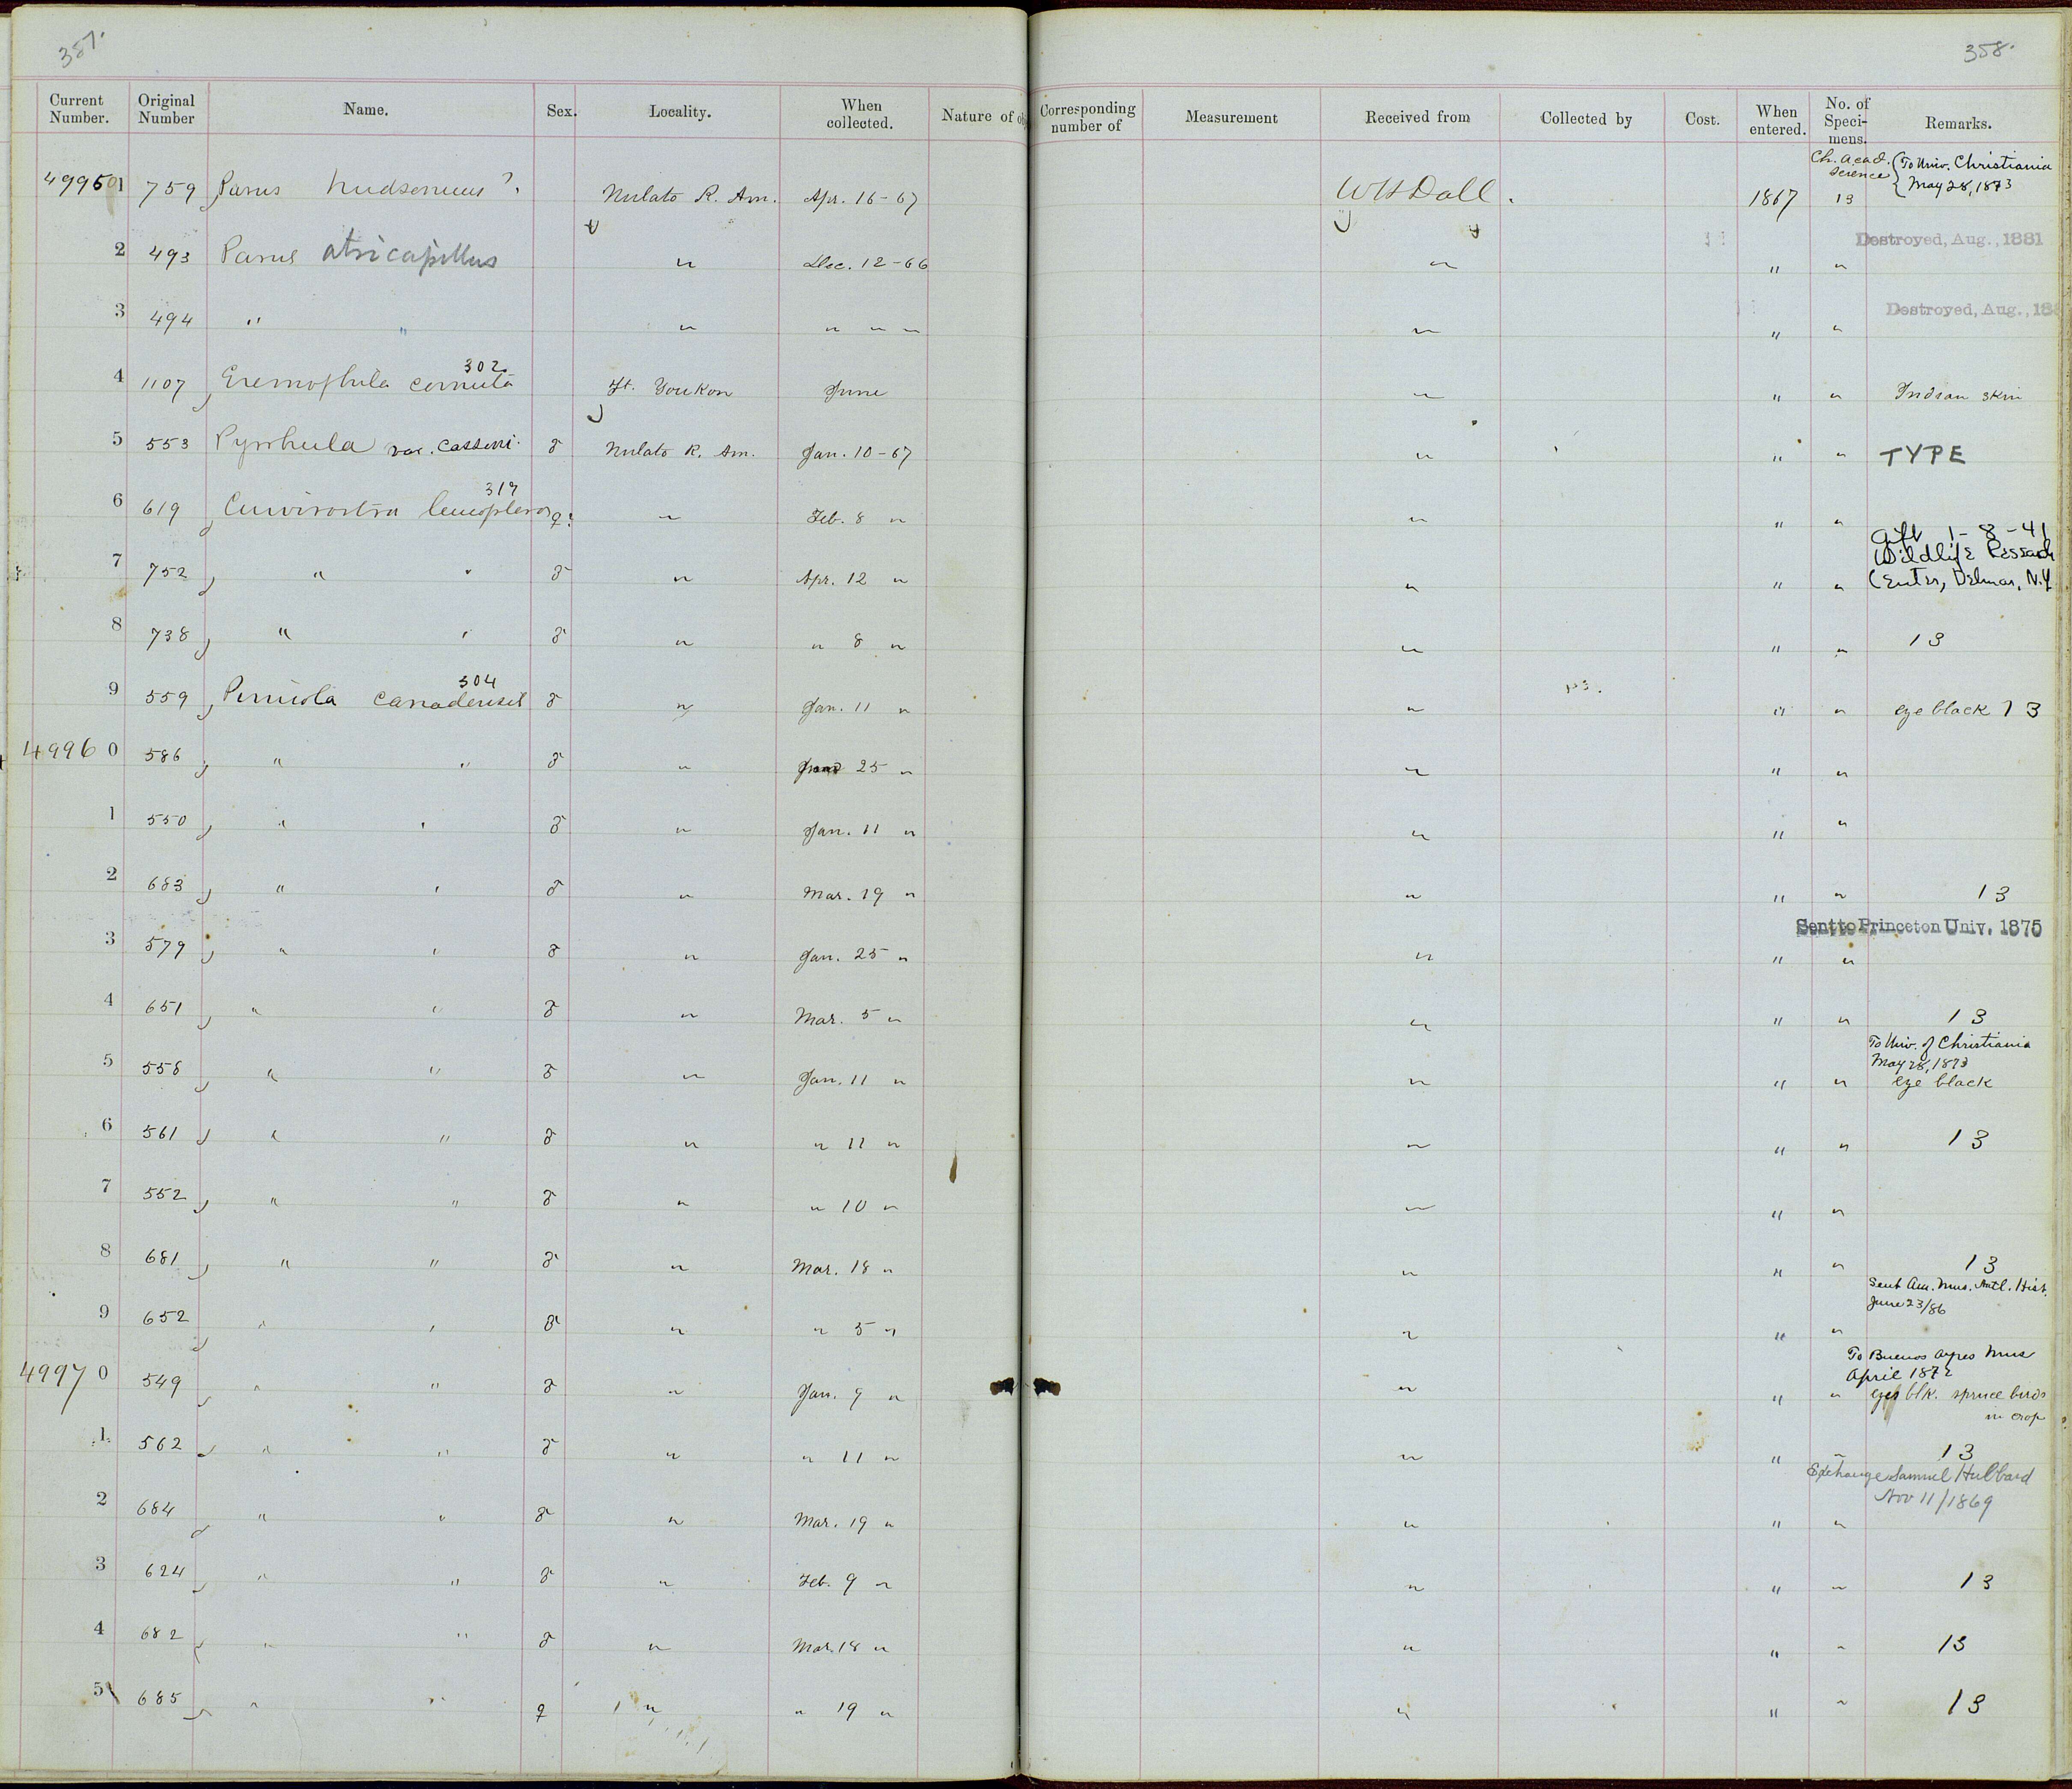 357. 358.
Current Number. Original Number Name. Sex. Locality. When collected. Nature of Corresponding number of Measurement Received from Collected by Cost. When entered. No. of Specimens. Remarks.
Ch. Acad. Science { To Univ. Christiania May 28, 1873
49951 759 Parus hudsonicus ? Nulato R. Am. Apr. 16-67 WH Dall. 1867 13
Destroyed, Aug., 1881
2 493 Parus atricapillus " Dec. 12-66 " " "
Destroyed, Aug., 18
3 494 " " " " " " " " "
302
4 1107 Eremophila cornuta Ft. Youkon June " " " Indian skin
5 553 Pyrrhula var. Cassini. ♂ Nulato R. Am. Jan. 10-67 " " " TYPE
319
6 619 Curvirostra leucoptera ♀? " Feb. 8 " " " "
Gift 1-8-41
Wildlife Research
7 752 " " ♂ " Apr. 12 " " " " Center, Delmar, N.Y.
8 738 " " ♂ " " 8 " " " " 13
304
9 559 Pinicola canadensis ♂ " Jan. 11 " " " " eye black 13
49960 586 " " ♂ " 25 " " " "
1 550 " " ♂ " Jan. 11 " " " "
2 683 " " ♂ " Mar. 19 " " " " 13
Sent to Princeton Univ. 1875
3 579 " " ♂ " Jan. 25 " " " "
4 651 " " ♂ " Mar. 5 " " " " 13
To Univ. of Christiania
May 28, 1873
5 558 " " ♂ " Jan. 11 " " " " eye black
6 561 " " ♂ " " 11 " " " " 13
7 552 " " ♂ " " 10 " " " "
8 681 " " ♂ " Mar. 18 " " " " 13
Sent Am. Mus. Natl. Hist.
June 23/86
9 652 " " ♂ " " 5 " " " "
To Buenos Ayres Mus
April 1872
49970 549 " " ♂ " Jan. 9 " " " " eyes blk. spruce buds
in crop
1 562 " " ♂ " " 11 " " " " 13
Exchange Samuel Hubbard
Nov 11/1869
2 684 " " ♂ " Mar. 19 " " " "
3 624 " " ♂ " Feb. 9 " " " " 13
4 682 " " ♂ " Mar. 18 " " " " 13
5 685 " " ♀ " " 19 " " " " 13